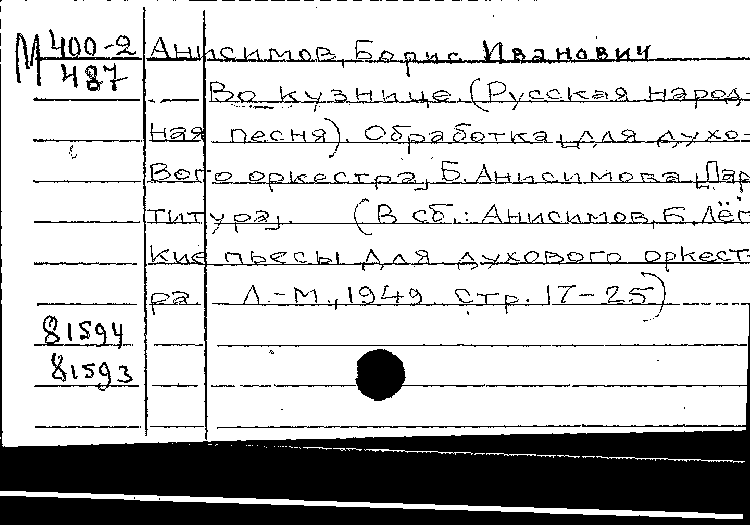 М 400-2 Анисимов, Борис Иванович
487
Во кузнице. (Русская народ-
ная песня). Обработка для духо-
вого оркестра Б. Анисимова Пар
титура. (В сб.: Анисимов, Б. Лёг
кие пьесы для духового оркест-
ра Л.-М., 1949 стр. 17-25)
81594
81593